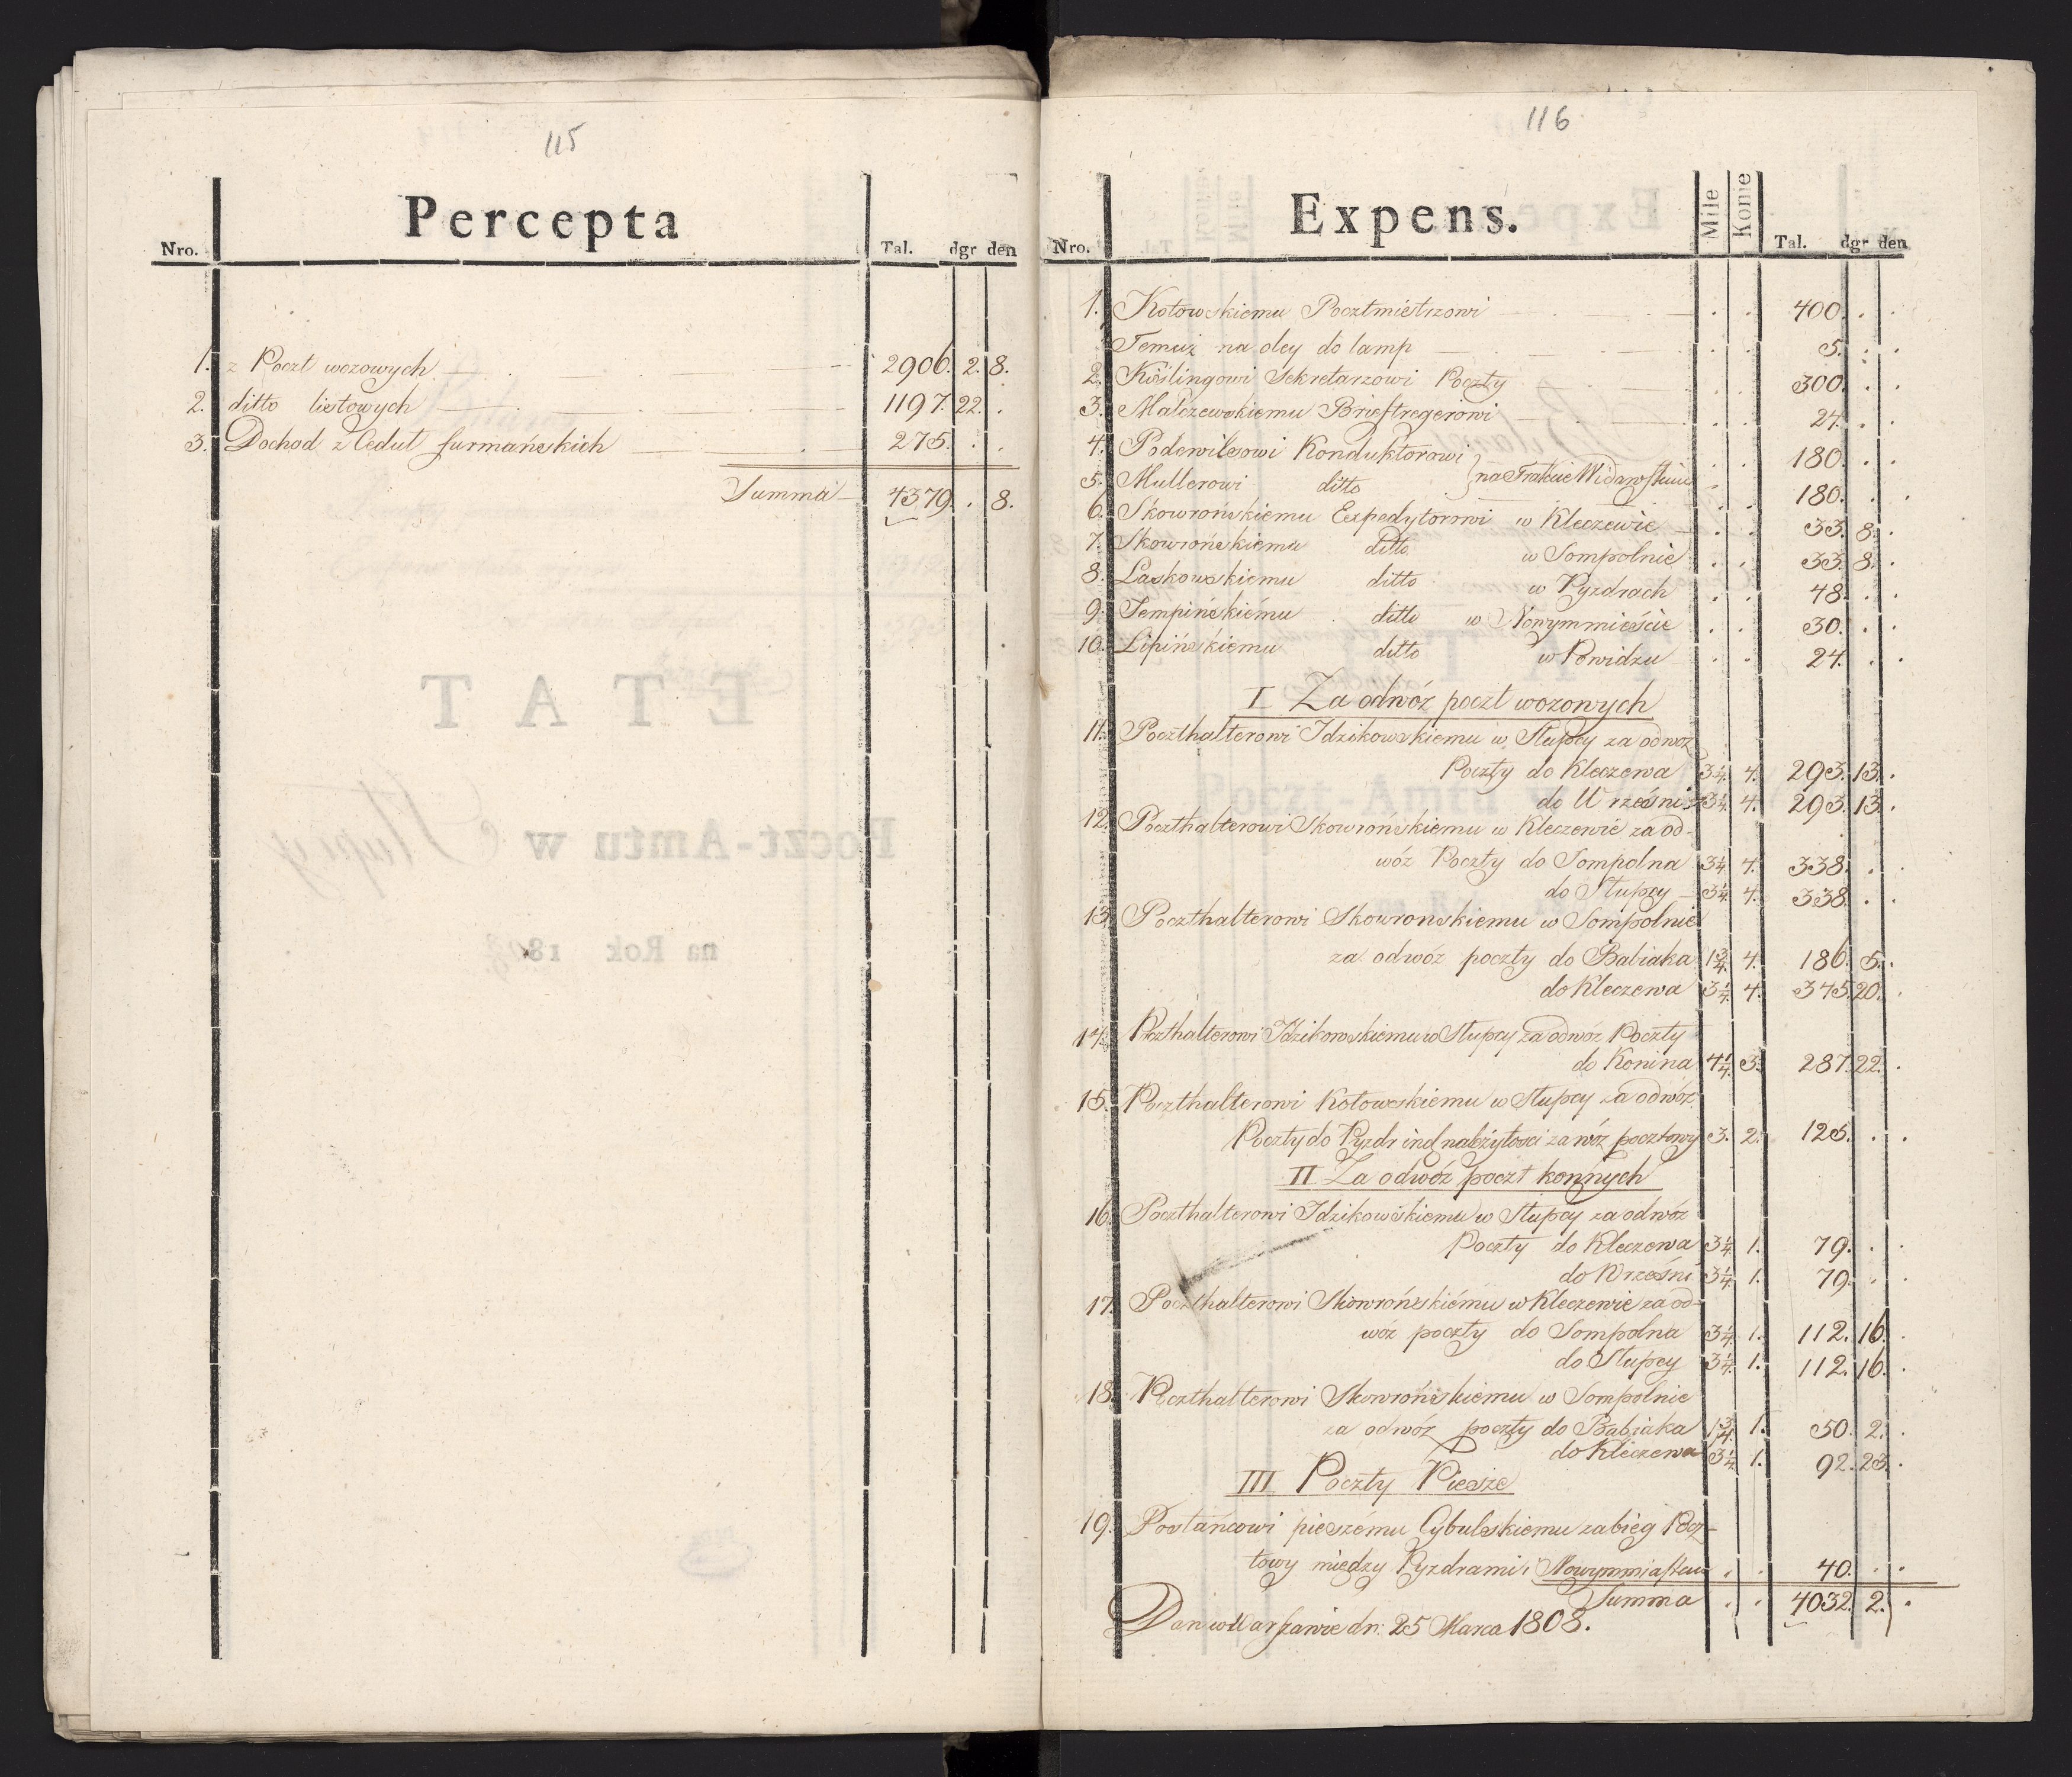 115
Percepta
Nro. Tal. dgr den
1. z Poczt wozowych 2906. 2. 8.
2. ditto listowych 1197. 22. .
3. Dochod z Cedul furmańskich 275. . .
Summa 4379. . 8.
116
Expens.
Nro. Mile Konie Tal. dgr den
1. Kotowskiemu Pocztmistrzowi . . 400. . .
Temuż na oley do lamp . . 5. . .
2. Kislingowi Sekretarzowi Poczty . . 300. . .
3. Malczewskiemu Brieftregerowi . . 24. . .
4. Podewilsowi Konduktorowi . . 180. . .
5. Mullerowi ditto } na Trakcie Widawskim . . 180. . .
6. Skowrońskiemu Expedytorowi w Kleczewie . . 33. 8. .
7. Skowrońskiemu ditto w Sompolnie . . 33. 8. .
8. Laskowskiemu ditto w Pyzdrach . . 48. . .
9. Tempińskiému ditto w Nowymmieście . . 30. . .
10. Lipińskiemu ditto w Powidzu . . 24. . .
I Za odwóz poczt wozowych
11. Poczthalterowi Idzikowskiemu w Słupcy za odwoz
Poczty do Kleczewa 3¼. 4. 293. 13. .
do Wrześni 3¼. 4. 293. 13. .
12. Poczthalterowi Skowrońskiemu w Kleczewie za od-
wóz Poczty do Sompolna 3¼ 4. 338. . .
do Słupcy 3¼. 4. 338. . .
13. Poczthalterowi Skowronskiemu w Sompolnie
za odwóz poczty do Babiaka 1¾. 4. 186. 5. .
do Kleczewa 3¼. 4. 345. 20. .
14. Poczthalterowi Idzikowskiemu w Słupcy za odwóz Poczty
do Konina 4¼. 3. 287. 22. .
15. Poczthalterowi Kotowskiemu w Słupcy za odwóz
Poczty do Pyzdr ind należytosci za wóz pocztowy 3. 2. 125. . .
II Za odwóz poczt konnych
16. Poczthalterowi Idzikowskiemu w Słupcy za odwóz
Poczty do Kleczewa 3¼. 1. 79. . .
do Wrześni 3¼. 1. 79. . .
17. Poczthalterowi Skowrońskiému w Kleczewie za od-
wóz poczty do Sompolna 3¼. 1. 112. 16. .
do Słupcy 3¼. 1. 112. 16. .
18. Poczthalterowi Skowrońskiemu w Sompolnie
za odwóz poczty do Babiaka 1¾. 1. 50. 2. .
do Kleczewa 3¼. 1. 92. 23. .
III Poczty Piesze
19. Posłańcowi pieszému Cybulskiemu za bieg Pocz-
towy między Pyzdrami i Nowymmiastem . . 40. . .
Summa . . 4032. 2. .
Dan w Warszawie dn: 25 Marca 1808.